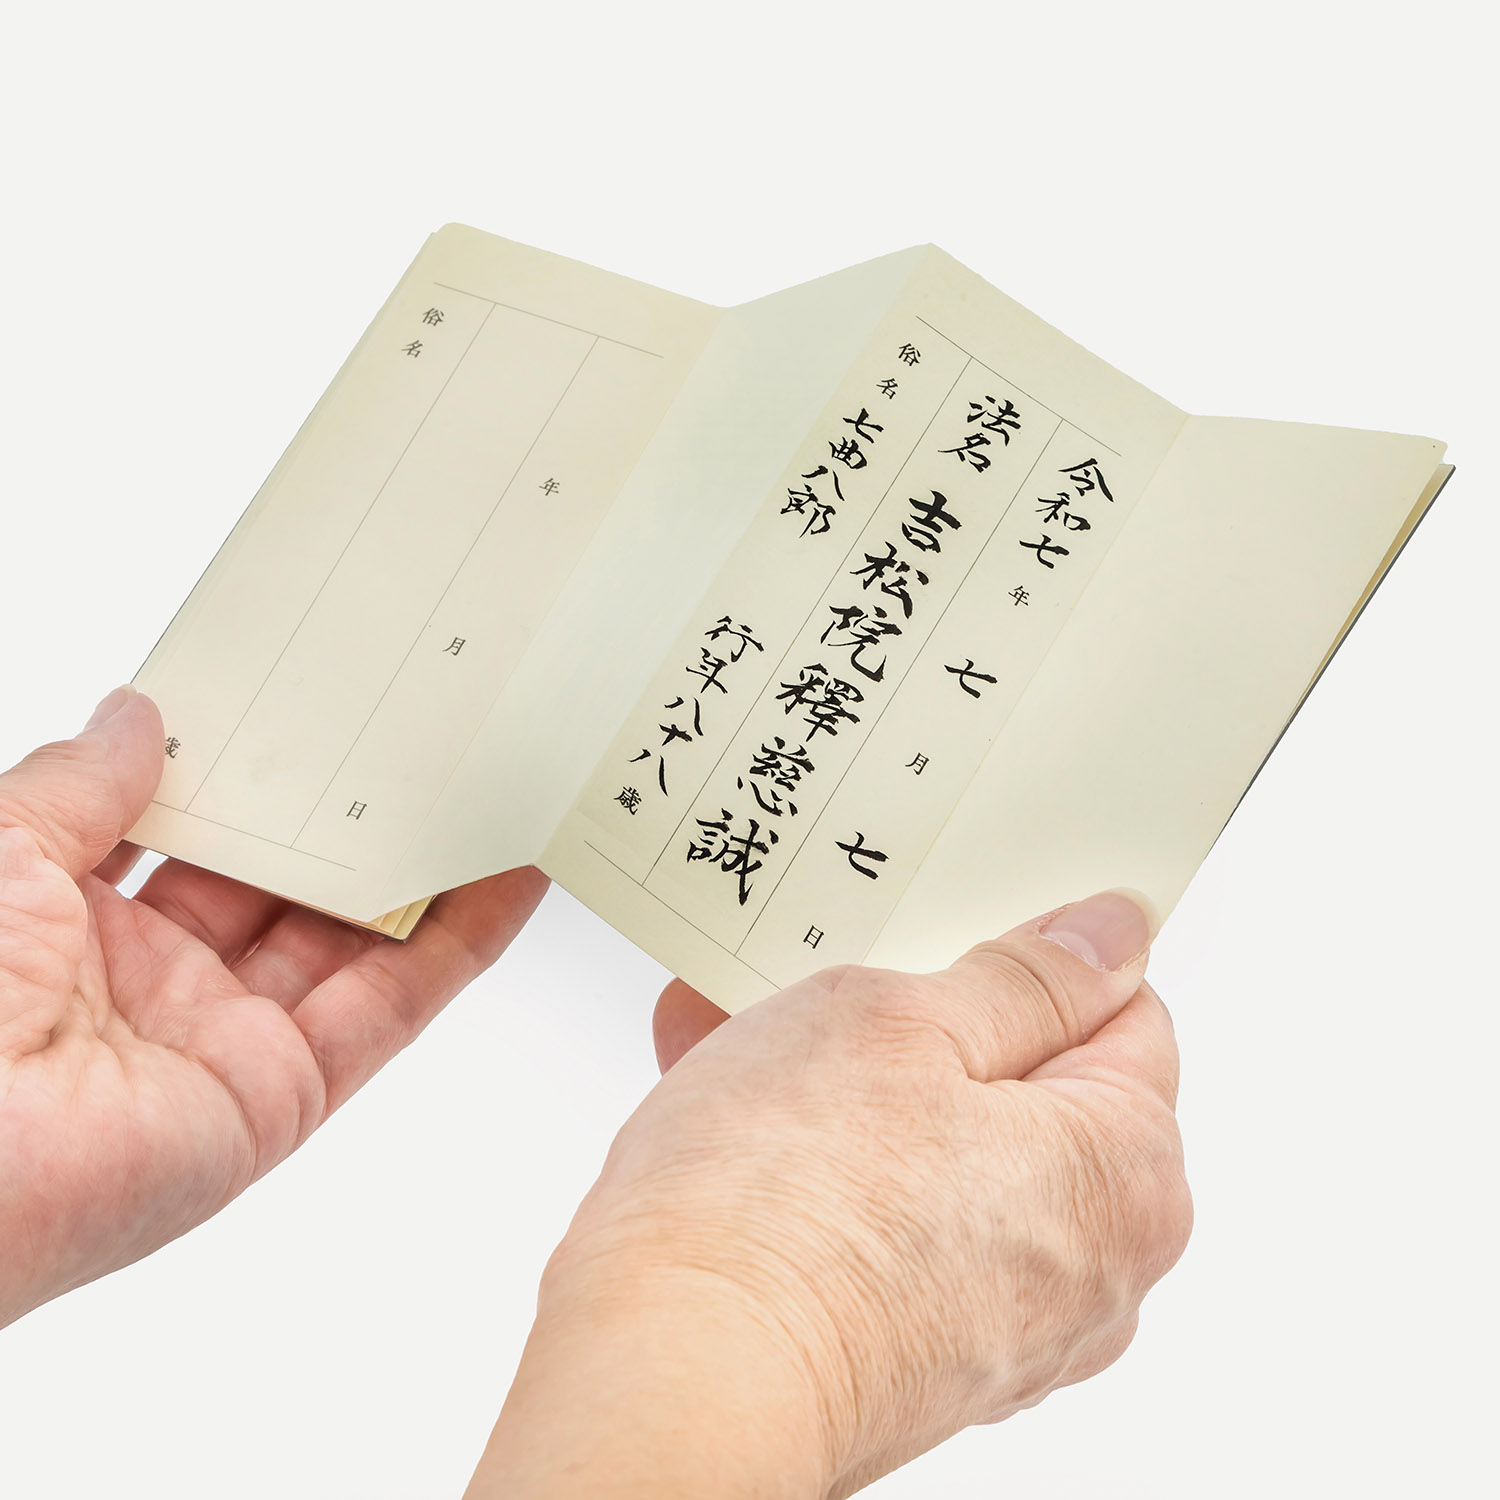 令和七年 七月 七日
法名 吉松院釋慈誠
俗名 七曲八郎 行年八十八歳
年 月 日
俗名 歳